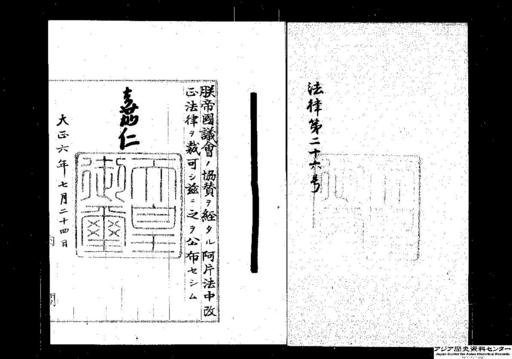 法律第二十六号
朕帝國議會ノ協賛ヲ経タル阿片法中改
正法律ヲ裁可シ茲ニ之ヲ公布セシム
嘉仁
天皇御璽
大正六年七月二十四日
アジア歴史資料センター
Japan Center for Asian Historical Records